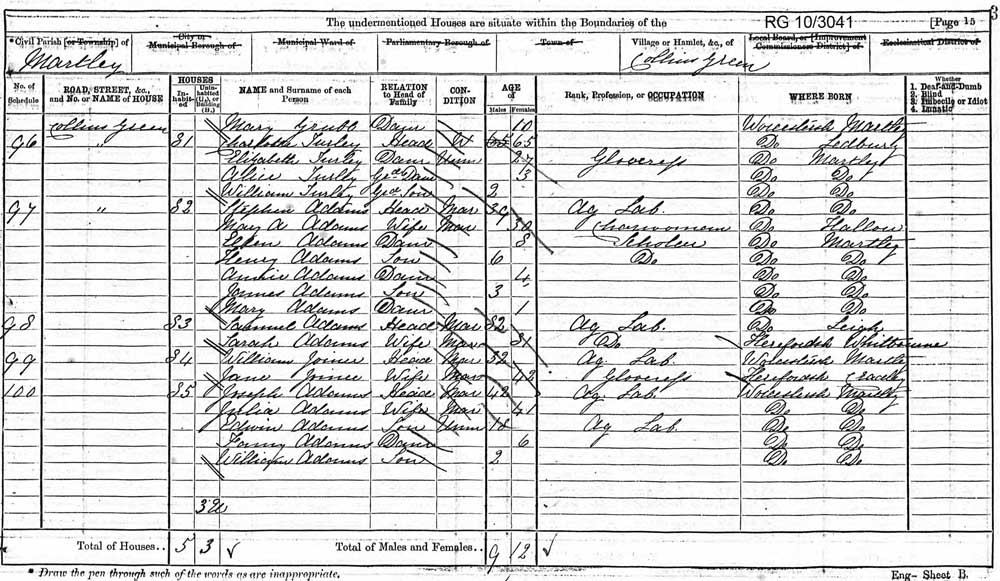 The undermentioned Houses are situate within the Boundaries of the RG 10/3041 [Page 15 3
*Civil Parish [or Township] of City or Municipal Borough of Municipal Ward of Parliamentary Borough of Town of Village or Hamlet, &c., of Local Board, or [Improvement Commissioners District] of Ecclesiastical District of
Martley Collins Green
No. of Schedule ROAD, STREET, &c., and No. or NAME of HOUSE HOUSES Inhabited Uninhabited (U.), or Building (B.) NAME and Surname of each Person RELATION to Head of Family CONDITION AGE of Males Females Rank, Profession, or OCCUPATION WHERE BORN Whether 1. Deaf-and-Dumb 2. Blind 3. Imbecile or Idiot 4. Lunatic
Collins Green Mary Grubb Daur 10 Worcestersh Martley
96 " 81 Charlotte Turley Head W 65 Do Ledbury
Elizabeth Turley Daur Unm 27 Gloveress Do Martley
Alice Turley Grd Daur 3 Do Do
William Turley Grd Son 2 Do Do
97 " 82 Stephen Adams Head Mar 39 Ag Lab. Do Do
Mary A Adams Wife Mar 30 Charwoman Do Hallow
Ellen Adams Daur 8 Scholar Do Martley
Henry Adams Son 6 Do Do Do
Annie Adams Daur 4 Do Do
James Adams Son 3 Do Do
Mary Adams Daur 1 Do Do
98 83 Samuel Adams Head Mar 82 Ag Lab. Do Leigh
Sarah Adams Wife Mar 81 Do Herefordsh Whitbourne
99 84 William Joiner Head Mar 52 Ag Lab. Worcestersh Martley
Jane Joiner Wife Mar 42 Gloveress Herefordsh Cradley
100 85 Joseph Adams Head Mar 42 Ag. Lab. Worcestersh Martley
Julia Adams Wife Mar 41 Do Do
Edwin Adams Son Unm 18 Ag Lab Do Do
Fanny Adams Daur 6 Do Do
William Adams Son 2 Do Do
3U
Total of Houses.. 5 3 Total of Males and Females.. 9 12
* Draw the pen through such of the words as are inappropriate. Eng- Sheet B.